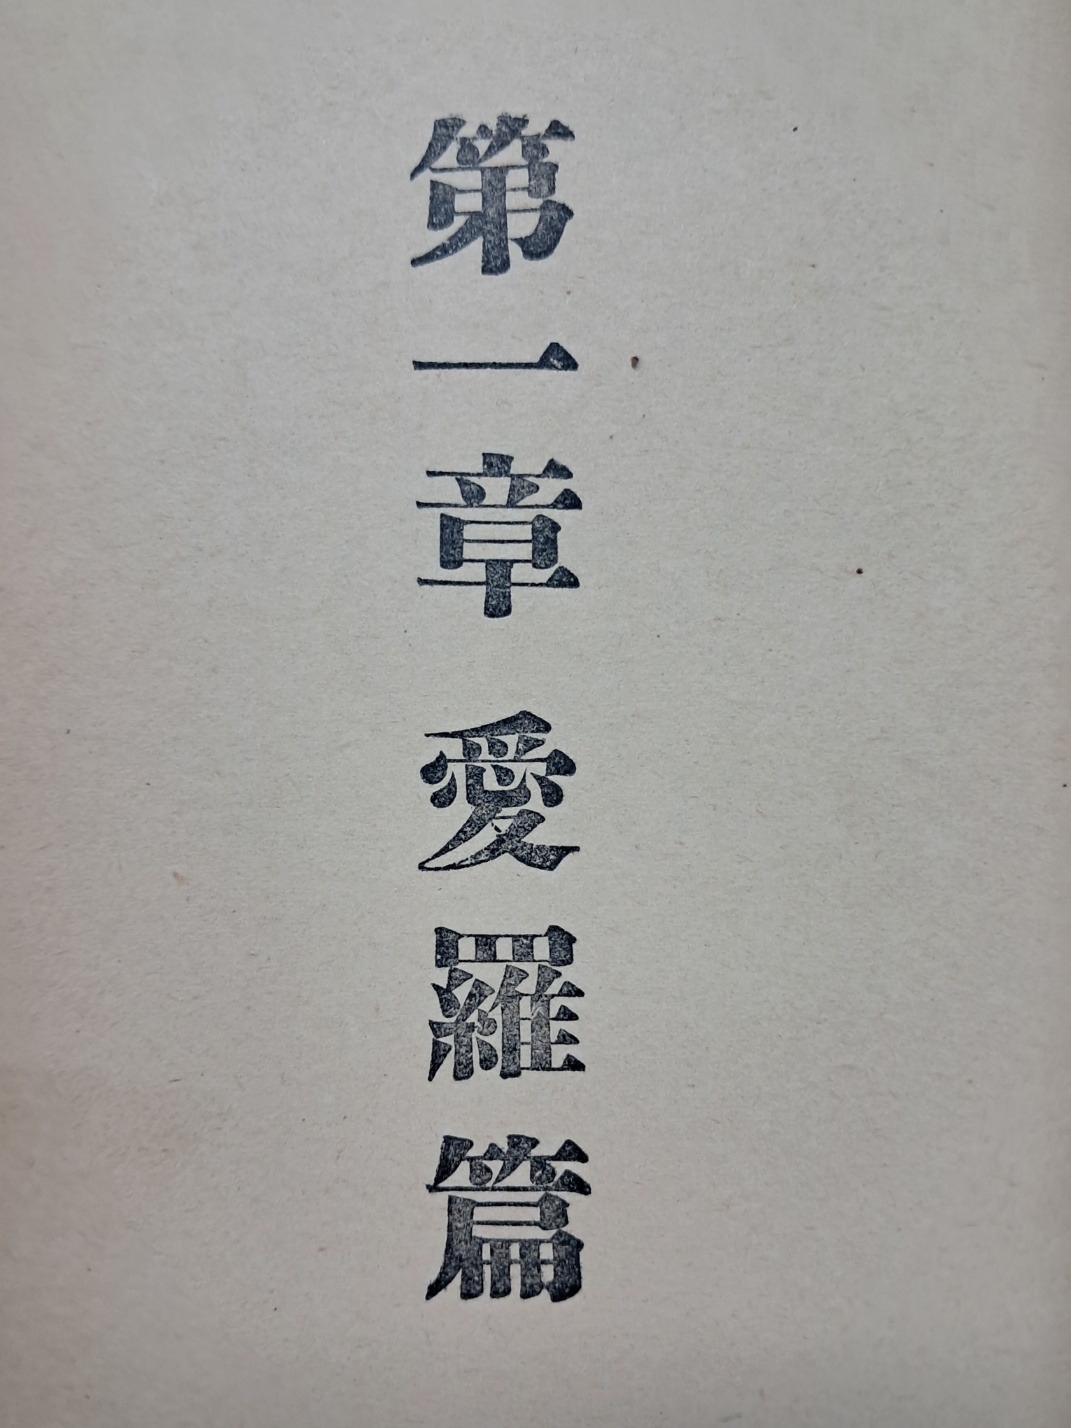 第一章 愛羅篇